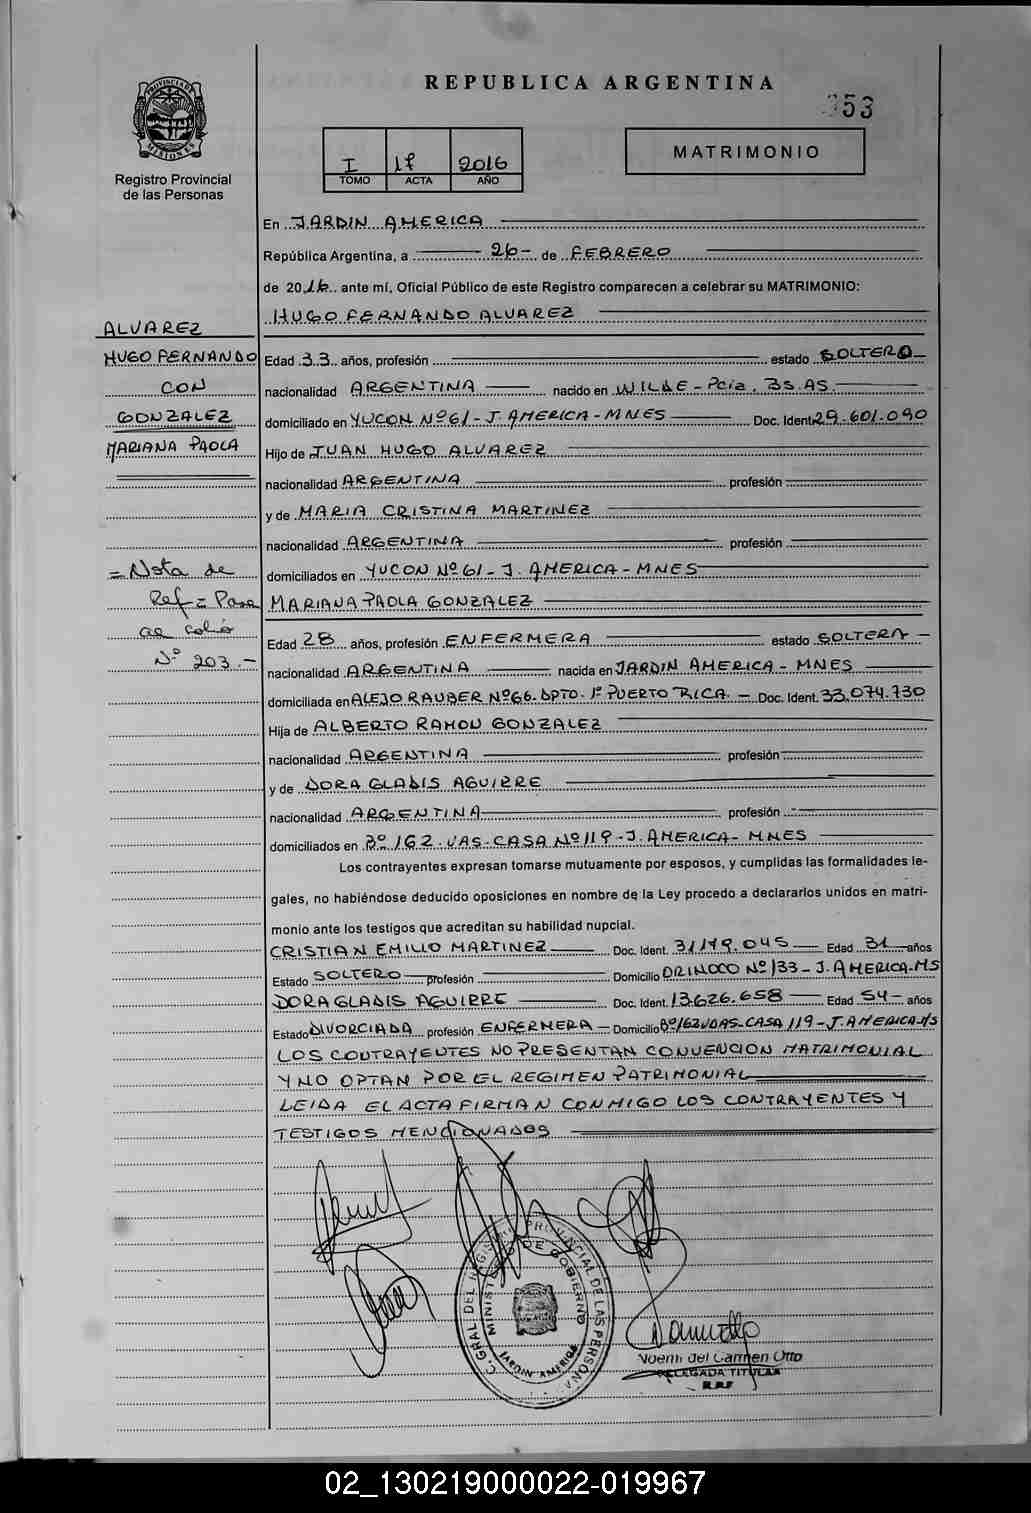 REPUBLICA ARGENTINA
353
PROVINCIA DE MISIONES
Registro Provincial
de las Personas
I 17 2016
TOMO ACTA AÑO
MATRIMONIO
En JARDIN AMERICA
República Argentina, a 26 - de FEBRERO
de 2016 ante mí, Oficial Público de este Registro comparecen a celebrar su MATRIMONIO:
HUGO FERNANDO ALVAREZ
ALVAREZ
HUGO FERNANDO
CON
GONZALEZ
MARIANA PAOLA
= Nota de
Ref = Pasa
al folio
Nº 203.-
Edad 33 años, profesión estado SOLTERO
nacionalidad ARGENTINA nacido en WILDE - Pcia. BS.AS.
domiciliado en YUCON Nº 61 - J. AMERICA - MNES Doc. Ident. 29.601.090
Hijo de JUAN HUGO ALVAREZ
nacionalidad ARGENTINA profesión
y de MARIA CRISTINA MARTINEZ
nacionalidad ARGENTINA profesión
domiciliados en YUCON Nº 61 - J. AMERICA - MNES
MARIANA PAOLA GONZALEZ
Edad 28 años, profesión ENFERMERA estado SOLTERA -
nacionalidad ARGENTINA nacida en JARDIN AMERICA - MNES
domiciliada en ALEJO RAUBER Nº 66. DPTO. 1º PUERTO RICA. - Doc. Ident. 33.074.730
Hija de ALBERTO RAMON GONZALEZ
nacionalidad ARGENTINA profesión
y de DORA GLADIS AGUIRRE
nacionalidad ARGENTINA profesión
domiciliados en Bº 162 VAS - CASA Nº 119 - J. AMERICA - MNES
Los contrayentes expresan tomarse mutuamente por esposos, y cumplidas las formalidades le-
gales, no habiéndose deducido oposiciones en nombre de la Ley procedo a declararlos unidos en matri-
monio ante los testigos que acreditan su habilidad nupcial.
CRISTIAN EMILIO MARTINEZ Doc. Ident. 31.179.045 Edad 31 años
Estado SOLTERO profesión Domicilio ORINOCO Nº 133 - J. AMERICA - MS
DORA GLADIS AGUIRRE Doc. Ident. 13.626.658 Edad 54 - años
Estado DIVORCIADA profesión ENFERMERA - Domicilio Bº 162 VDAS - CASA 119 - J. AMERICA - MS
LOS CONTRAYENTES NO PRESENTAN CONVENCION MATRIMONIAL
Y NO OPTAN POR EL REGIMEN PATRIMONIAL
LEIDA EL ACTA FIRMAN CONMIGO LOS CONTRAYENTES Y
TESTIGOS MENCIONADOS
C. GRAL DEL REGISTRO PROVINCIAL DE LAS PERSONAS
MINISTERIO DE GOBIERNO
JARDIN AMERICA
Noemi del Carmen Otto
DELEGADA TITULAR
02_130219000022-019967